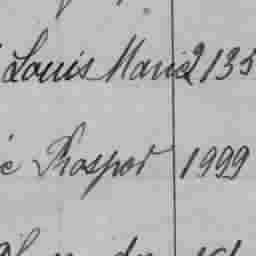 Louis Marie 2135
Prosper 1999